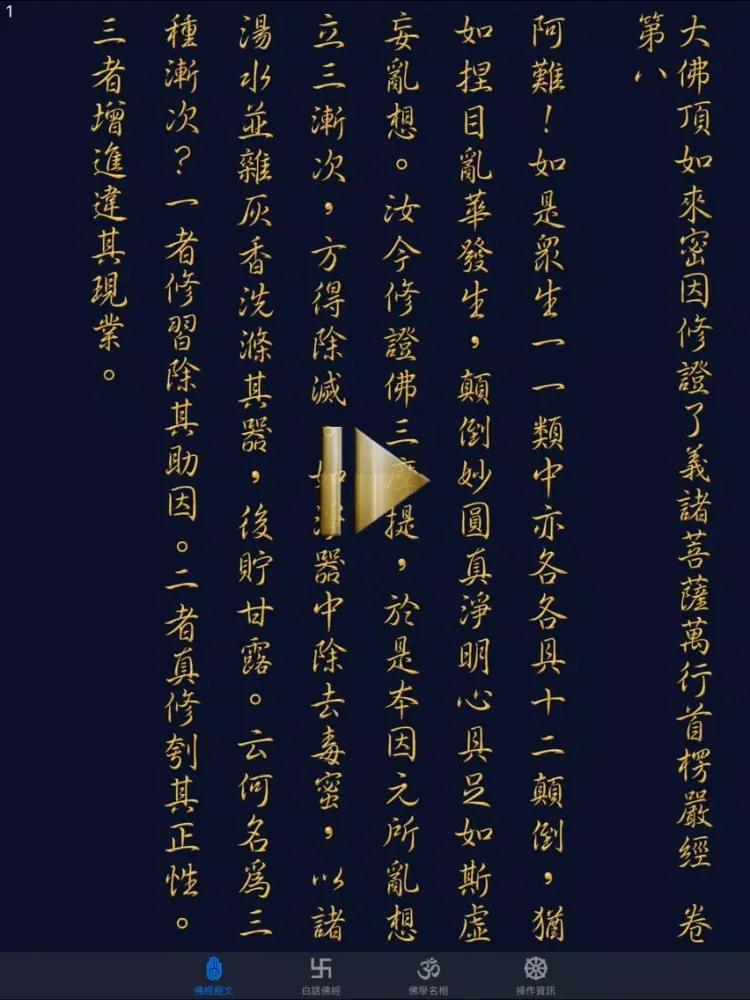 1
大佛頂如來密因修證了義諸菩薩萬行首楞嚴經 卷
第八
阿難！如是眾生一一類中亦各各具十二顛倒，猶
如捏目亂華發生，顛倒妙圓真淨明心具足如斯虛
妄亂想。汝今修證佛三摩提，於是本因元所亂想
立三漸次，方得除滅。如淨器中除去毒蜜，以諸
湯水並雜灰香洗滌其器，後貯甘露。云何名為三
種漸次？一者修習除其助因。二者真修刳其正性。
三者增進違其現業。
佛經經文
白話佛經
佛學名相
操作資訊